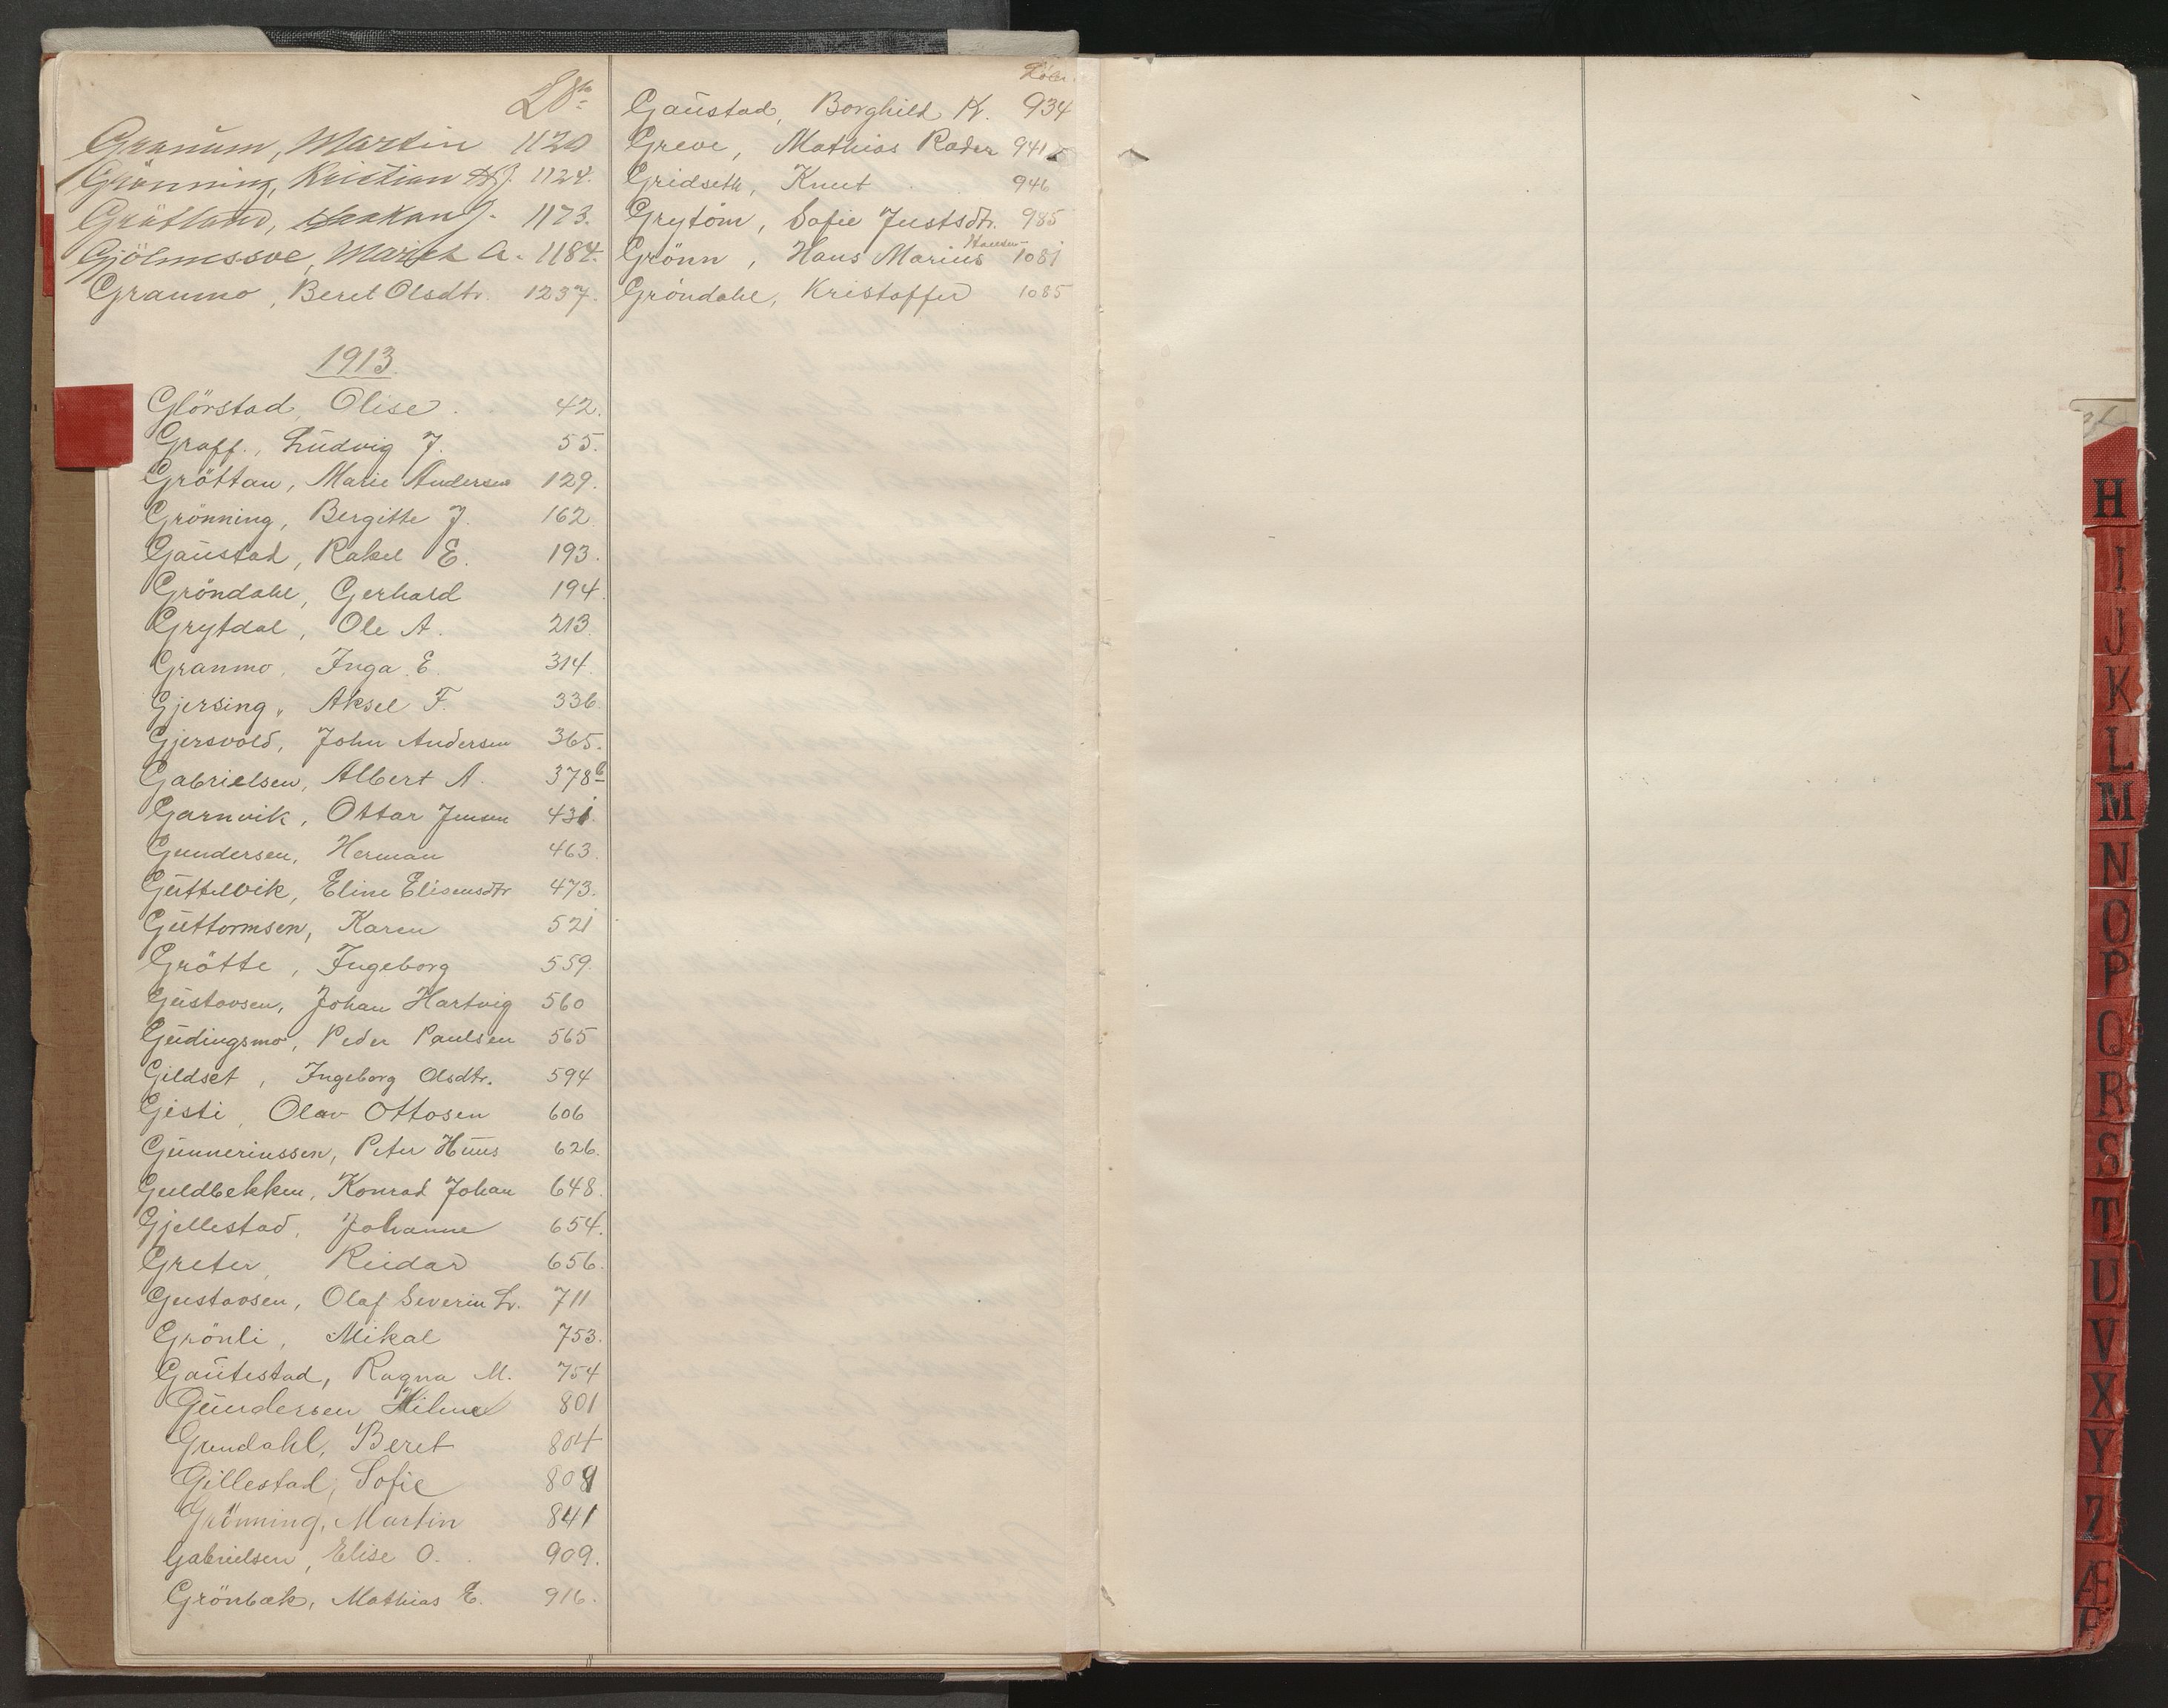 Lbn.
Granum, Martin 1120
Grönning, Kristian A.J. 1124.
Grötland, Haakan J. 1173.
Gjölmessoe, Marit A. 1184.
Granmo, Beret Olsdtr. 1237.
1913.
Glörstad, Olise 42.
Graff, Ludvig J. 55.
Gröttan, Marie Andersen 129.
Grönning, Bergitte J. 162
Gaustad, Rakel E. 193.
Gröndahl, Gerhard 194.
Grytdal, Ole A. 213.
Granmo, Inga E. 314.
Gjersing, Aksel F. 336
Gjersvold, John Andersen 365.
Gabrielsen, Albert A. 378b
Garnvik, Ottar Jensen 431.
Gundersen, Herman 463.
Guttelvik, Eline Elisensdtr 473.
Guttormsen, Karen 521
Grötte, Ingeborg 559.
Gustavsen, Johan Hartvig 560
Gudingsmo, Peder Paulsen 565
Gildset, Ingeborg Olsdtr. 594
Gisti, Olav Ottosen 606
Gunneriussen, Peter Huus 626.
Guldbekken, Konrad Johan 648.
Gjellestad, Johanne 654.
Greter, Reidar 656.
Gustavsen, Olaf Severin L. 711
Grönli, Mikal 753.
Gautestad, Ragna M. 754
Gundersen Hilma 801
Grundahl, Beret 804
Gillestad, Sofie 809
Grönning, Martin 841
Gabrielsen, Elise O. 909.
Grönbæk, Mathias E. 916.
Löbn.
Gaustad, Borghild K. 934
Greve, Mathias Rader 941
Gridseth, Knut 946
Grytöm, Sofie Justsdtr. 985
Grönn, Hans Marius Hansen 1081
Gröndahl, Kristoffer 1085
H
I
J
K
L
M
N
O
P
Q
R
S
T
U
V
X
Y
Z
Æ